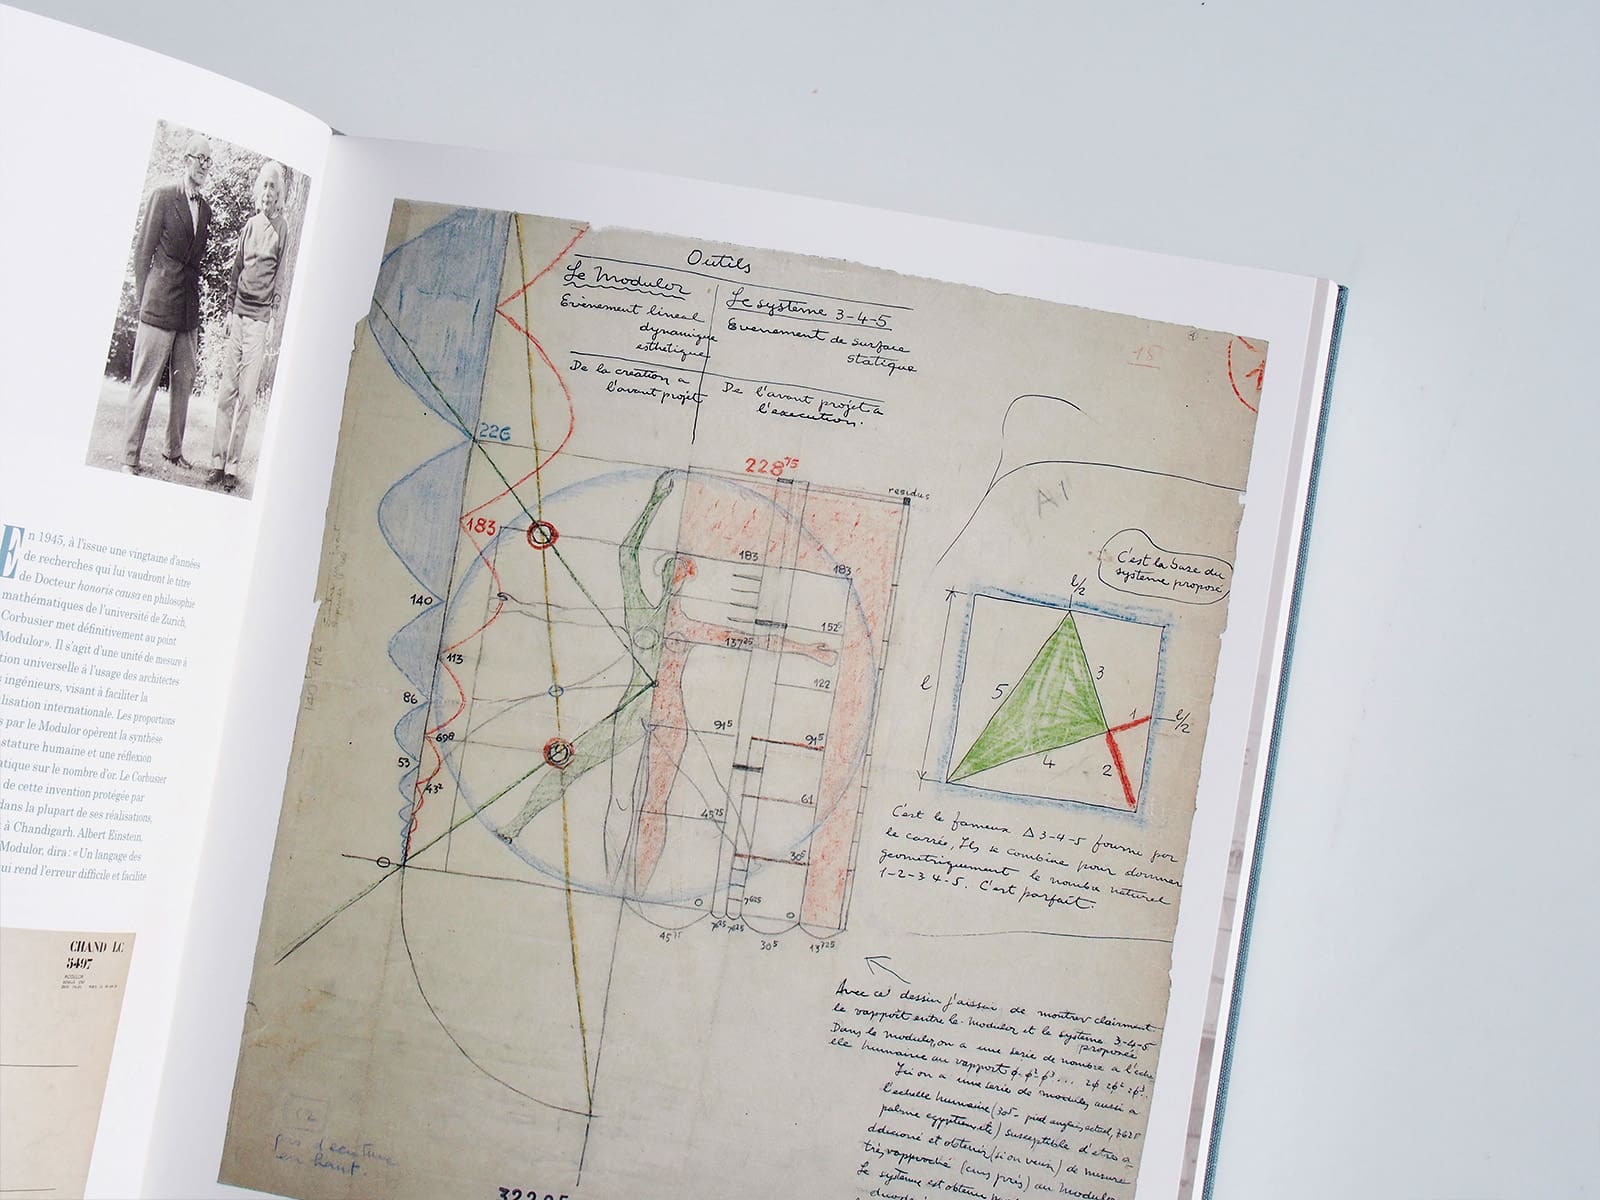 En 1945, à l'issue une vingtaine d'années
de recherches qui lui vaudront le titre
de Docteur honoris causa en philosophie
mathématiques de l'université de Zurich,
Corbusier met définitivement au point
Modulor». Il s'agit d'une unité de mesure à
tion universelle à l'usage des architectes
s ingénieurs, visant à faciliter la
lisation internationale. Les proportions
s par le Modulor opèrent la synthèse
stature humaine et une réflexion
atique sur le nombre d'or. Le Corbusier
de cette invention protégée par
dans la plupart de ses réalisations,
à Chandigarh. Albert Einstein,
Modulor, dira : «Un langage des
ui rend l'erreur difficile et facilite
CHAND LC
5497
Outils
Le Modulor
Evènement lineal
dynamique
esthetique
De la creation a
l'avant projet
Le systeme 3-4-5
Evenement de surface
statique
De l'avant projet a
l'execution.
15
226
183
140
113
86
698
53
43²
228⁷⁵
residus
183
183
152⁵
137²⁵
122
91⁵
91⁵
61
45⁷⁵
30⁵
7⁶²⁵
45⁷⁵
7⁶²⁵
7⁶²⁵
30⁵
13⁷²⁵
A1
C'est la base du
systeme proposé
l/2
l
5
3
4
1
2
l/2
C'est le fameux Δ 3-4-5 fourni par
le carré, Ils se combine pour donner
geometriquement le nombre naturel
1-2-3 4-5. C'est parfait.
Avec ce dessin j'aissai de montrer clairment
le rapport entre le modulor et le systeme 3-4-5
proposée
Dans le modulor, on a une serie de nombre a l'eche
elle humaine au rapport φ-φ²-φ³... 2φ 2φ² 2φ³
Ici on a une serie de modules aussi a
l'echelle humaine (30⁵- pied anglais actuel, 7625
palme egyptien, etc) susceptible d'etres a
ddicioné et obtenir (si on veux) de mesure
très rapproché (cms près) au Modulor
Le systeme est obtenu
en haut.